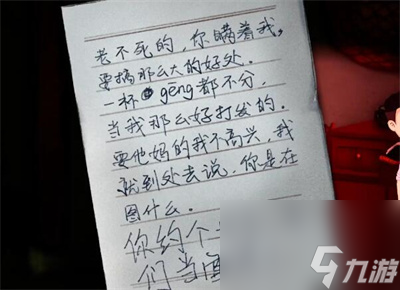 老不死的，你瞒着我，
要搞那么大的好处.
一杯gēng都不分，
当我那么好打发的.
要他妈的我不高兴，我
就到处去说，你是在
图什么。
你约个
们当面
九游